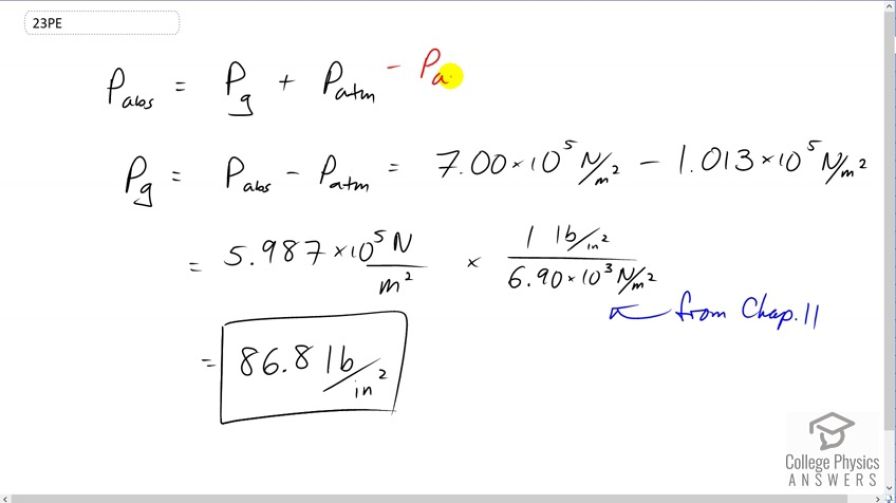 23PE
P_abs = P_g + P_atm - P_a
P_g = P_abs - P_atm = 7.00 × 10^5 N/m^2 - 1.013 × 10^5 N/m^2
= 5.987 × 10^5 N/m^2 × 1 lb/in^2 / 6.90 × 10^3 N/m^2
from Chap. 11
= 86.8 lb/in^2
College Physics
ANSWERS